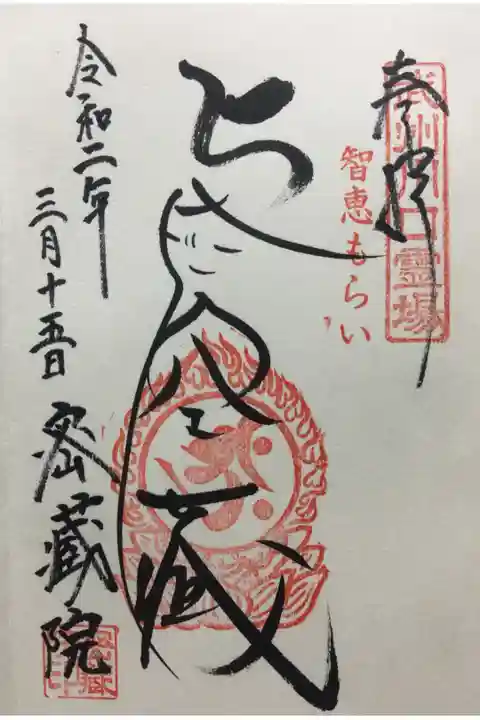 奉拝
武州川口霊場
智恵もらい
蔵
令和二年
三月十五日
密蔵院